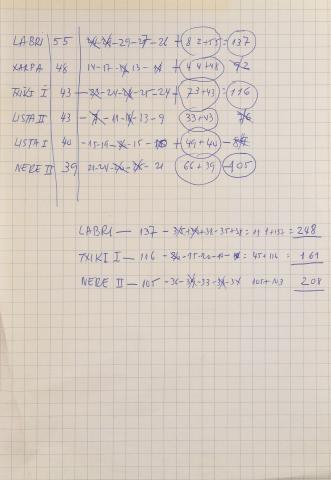 LABRI 55 29-27-26 + 82+55 = 137
XARPA 48 14-17- 13- + 44+48 92
TXIKI I 43 - 24- -25-24 + 73+43 = 116
LISTA II 43 - 11- 13-9 33+43 76
LISTA I 40 -15-19- -15- + 49+40
NERE II 39 21-24- - 21 66+39 105
LABRI — 137 - +38-35+38 = 111+137 = 248
TXIKI I — 116 - -15-20- = 45+116 = 161
NERE II — 105 -36- -33- 105+103 208